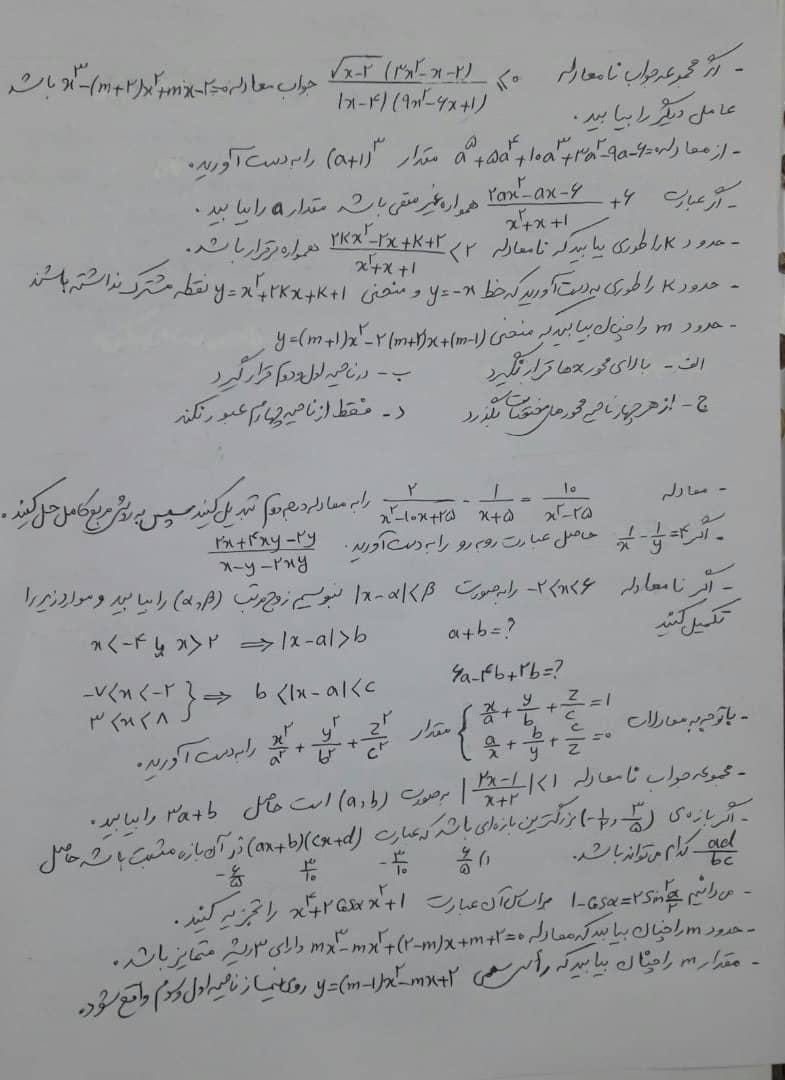 - اگر مجموعه جواب نامعادله \frac{\sqrt{x-۲} (۳x^۲-x-۲)}{|x-۴| (۹x^۲-۶x+۱)} \leq ۰ جواب معادله x^۳-(m+۲)x^۲+mx-۲=۰ باشد
عامل دیگر را بیابید.
- از معادله a^۵+۵a^۴+۱۰a^۳+۳a^۲-۹a-۶=۰ مقدار (a+۱)^۳ را به دست آورید.
- اگر عبارت \frac{۲ax^۲-ax-۶}{x^۲+x+۱}+۶ همواره غیر منفی باشد مقدار a را بیابید.
- حدود k را طوری بیابید که نامعادله \frac{۲kx^۲-۲x+k+۲}{x^۲+x+۱}<۲ همواره برقرار باشد.
- حدود k را طوری به دست آورید که خط y=-x و منحنی y=x^۲+۲kx+k+۱ نقطه مشترک نداشته باشند
- حدود m را چنان بیابید که منحنی y=(m+۱)x^۲-۲(m+۲)x+(m-۱)
الف- بالای محور xها قرار نگیرد ب- در ناحیه اول و دوم قرار گیرد
ج- از هر چهار ناحیه محورهای مختصات بگذرد د- فقط از ناحیه چهارم عبور نکند
- معادله \frac{۲}{x^۲-۱۰x+۲۵} - \frac{۱}{x+۵} = \frac{۱۰}{x^۲-۲۵} را به معادله درجه دوم تبدیل کنید سپس به روش مربع کامل حل کنید.
- اگر \frac{۱}{x}-\frac{۱}{y}=۴ حاصل عبارت روبه رو را به دست آورید. \frac{۲x+۴xy-۲y}{x-y-۲xy}
- اگر نامعادله -۲<x<۶ را به صورت |x-α|<β بنویسیم زوج مرتب (α,β) را بیابید و موارد زیر را
تکمیل کنید
x<-۴ یا x>۲ ⟹ |x-a|>b a+b=?
-۷<x<-۲
۳<x<۸ } ⟹ b<|x-a|<c ۶a-۴b+۲b=?
- با توجه به معادلات { \frac{x}{a}+\frac{y}{b}+\frac{z}{c}=۱
\frac{a}{x}+\frac{b}{y}+\frac{c}{z}=۰ مقدار \frac{x^۲}{a^۲}+\frac{y^۲}{b^۲}+\frac{z^۲}{c^۲} را به دست آورید.
- مجموعه جواب نامعادله |\frac{۲x-۱}{x+۲}|<۱ به صورت (a,b) است حاصل ۳a+b را بیابید.
- اگر بازه ی (-\frac{۱}{۲},\frac{۳}{۵}) بزرگترین بازه ای باشد که عبارت (ax+b)(cx+d) در آن بازه مثبت باشد حاصل
\frac{ad}{bc} کدام می تواند باشد. ۱) \frac{۶}{۵} -\frac{۳}{۱۰} \frac{۳}{۱۰} -\frac{۶}{۵}
- می دانیم ۱-cosα=۲sin^۲\frac{α}{۲} بر اساس آن عبارت x^۴+۲cosα x^۲+۱ را تجزیه کنید.
- حدود m را چنان بیابید که معادله mx^۳-mx^۲+(۲-m)x+m+۲=۰ دارای ۳ ریشه متمایز باشد.
- مقدار m را چنان بیابید که رأس سهمی y=(m-۱)x^۲-mx+۲ روی نیمساز ناحیه اول و سوم واقع شود.